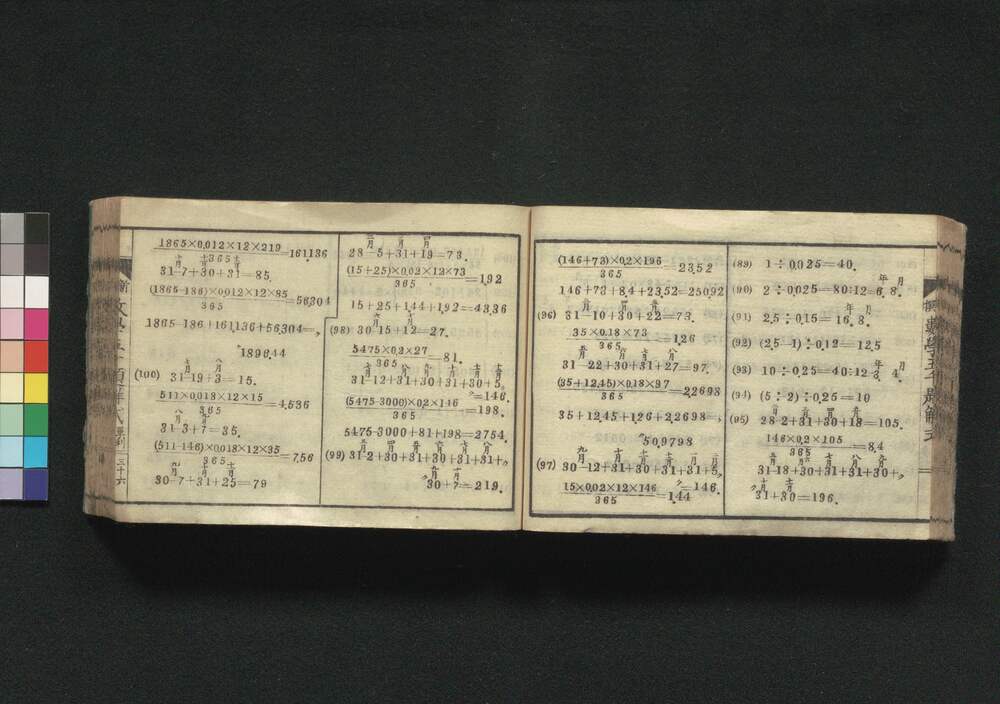 (89) 1÷0.025=40.
年 月
(90) 2÷0.025=80:12=6. 8.
年 月
(91) 2.5÷0.15=16. 8.
(92) (2.5-1)÷0.12=12.5
年 月
(93) 10÷0.25=40:12=3. 4.
(94) (5÷2)÷0.25=10
(95) 28-2+31+30+18=105.
146×0.2×105
365
=8.4
31-18+30+31+31+30+〃
〃31+30=196.
(146+73)×0.2×196
365
=23.52
146+73+8.4+23.52=250.92
(96) 31-10+30+22=73.
35×0.18×73
365
=1.26
31-22+30+31+27=97.
(35+12.45)×0.18×97
365
=2.2698
35+12.45+1.26+2.2698=〃
〃50.9798
(97) 30-12+31+30+31+31+5〃
〃=146.
15×0.02×12×146
365
=1.44
28-5+31+19=73.
(15+25)×0.02×12×73
365
=1.92
15+25+1.44+1.92=43.36
(98) 30-15+12=27.
5475×0.2×27
365
=81.
31-12+31+30+31+30+5〃
〃=146.
(5475-3000)×0.2×146
365
=198.
5475-3000+81+198=2754.
(99) 31-2+30+31+30+31+31+〃
〃30+7=219.
1865×0.012×12×219
365
=161.136
31-7+30+31=85.
(1865-186)×0.012×12×85
365
=56.304
1865-186+161.136+56.304=〃
〃1896.44
(100) 31-19+3=15.
511×0.018×12×15
365
=4.536
八月 九月
31-3+7=35.
(511-146)×0.018×12×35
365
=7.56
30-7+31+25=79
五十六